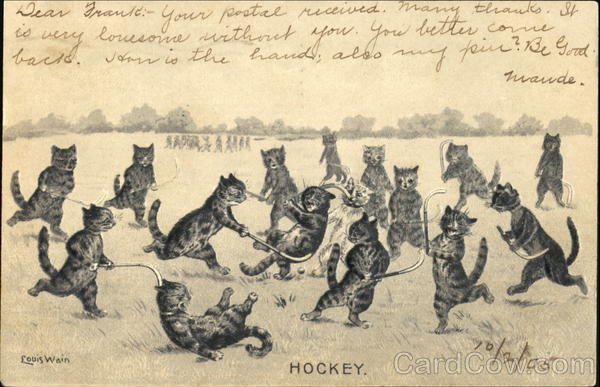 Dear Frank:- Your postal received. Many thanks. It
is very lonesome without you. You better come
back. How is the hand; also my pin? Be Good.
Maude.
Louis Wain
HOCKEY.
10/2/05
CardCow.com